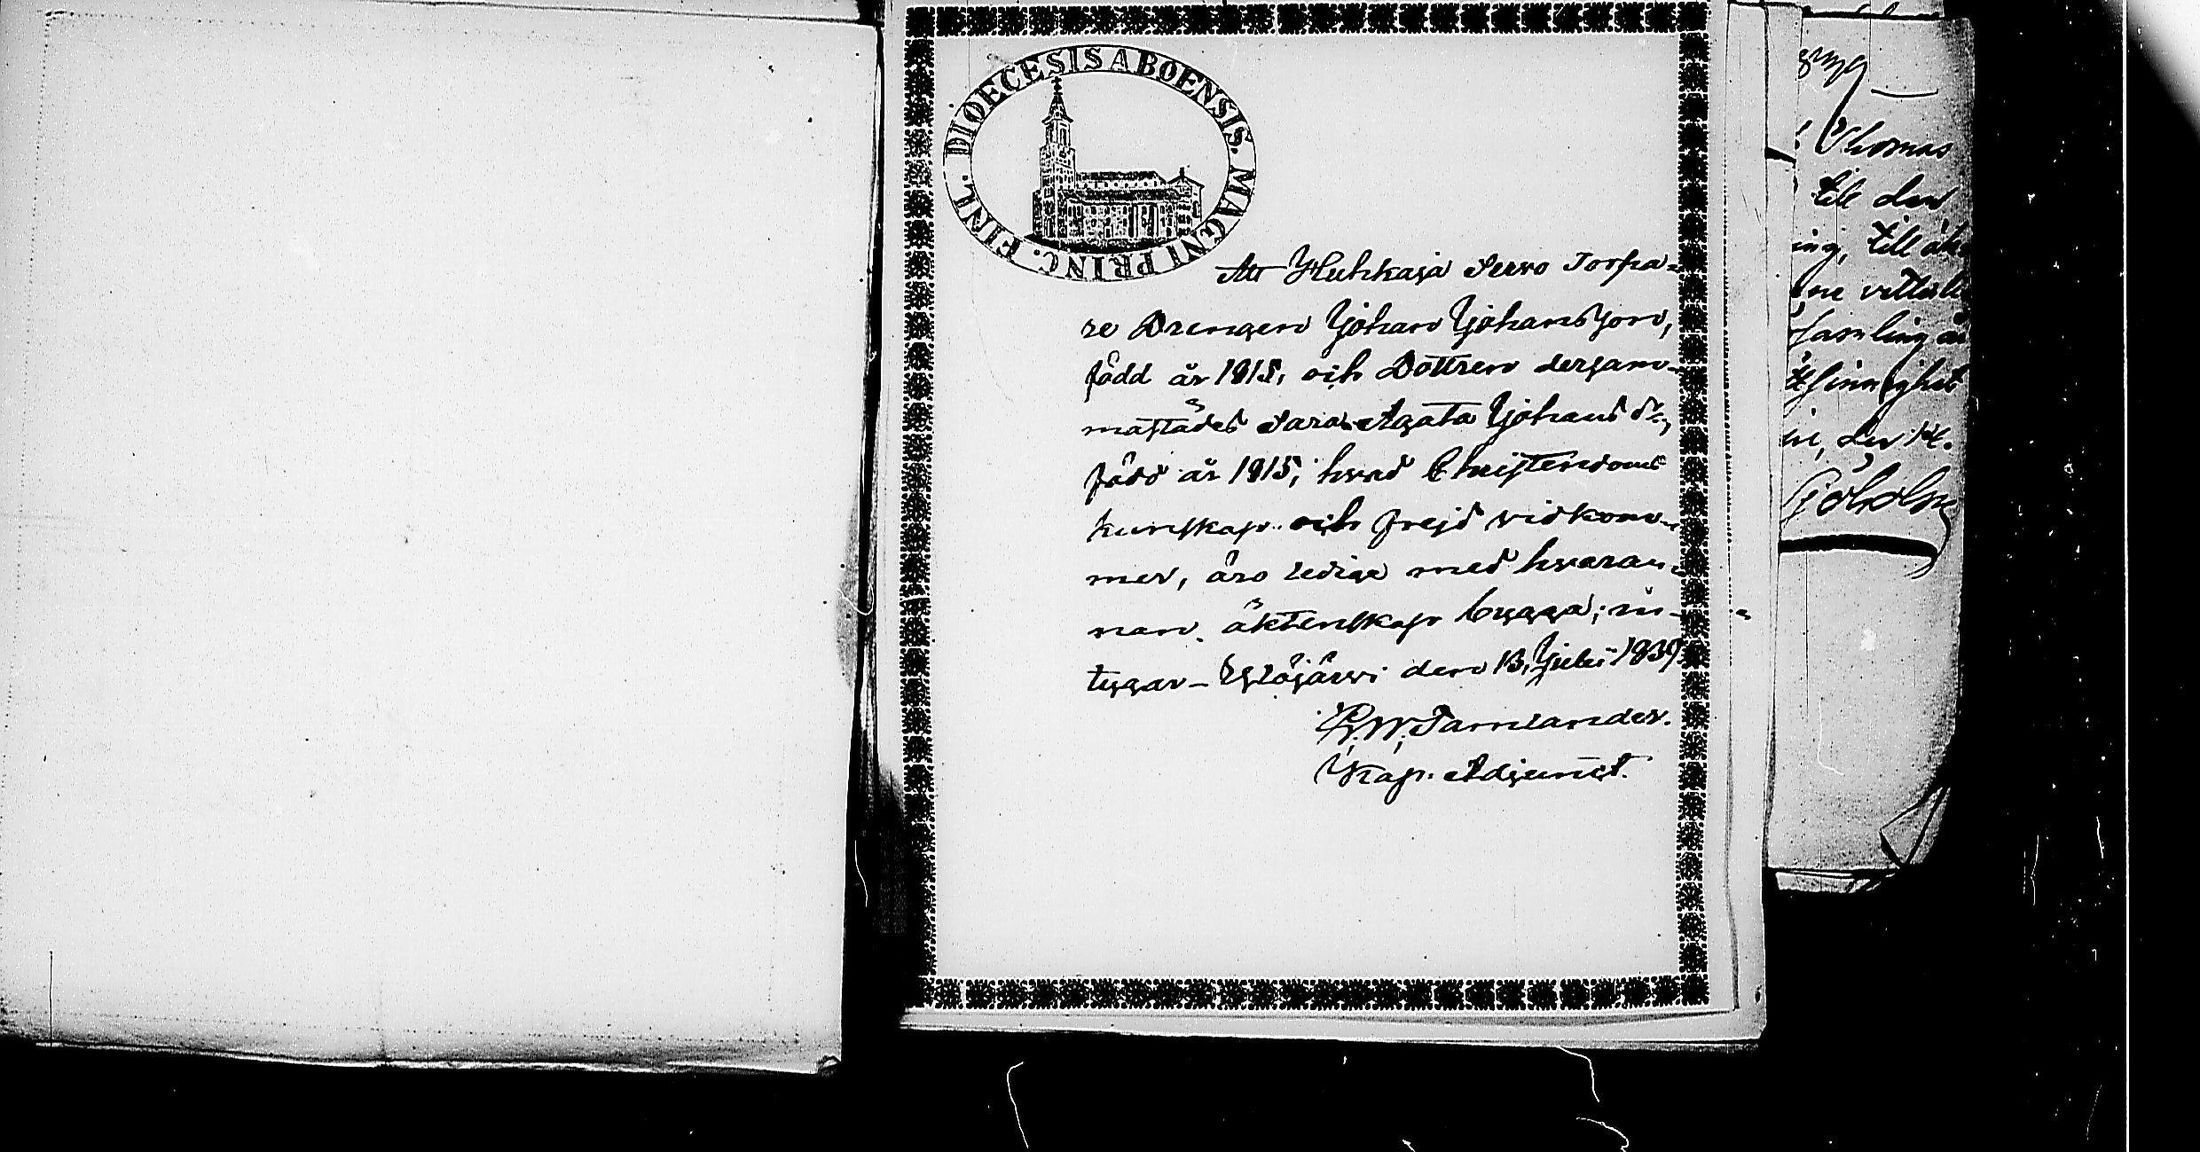 DIOECESIS ABOENSIS. MAGNI PRINC. FINL.
Att Huhkaja Servo Torpa-
re Drengen Johan Johansson,
född år 1815, och Dottren dersam-
mastädes Sara Agata Johans dr,
född år 1815, hvad Christendoms
kunskap och frejd vidkom-
mer, äro ledige med hvaran-
nan äktenskap bygga; in-
tygar – Yläjärvi den 13 Juli 1839
W. Tamlander.
Kap. Adjunct.
Thomas
till den
ing, till äk
ne vitterli
samling är
sinnighet
den 14.
Sjöholm